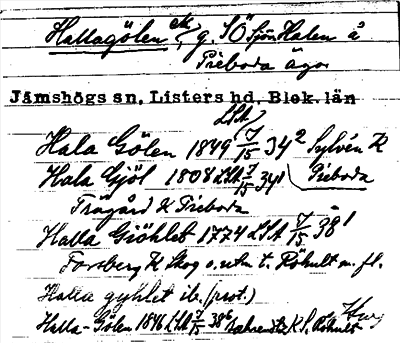 Hallagölen ek, g. SÖ Sjön Halen å
Priboda ägor
Jämshögs sn, Listers hd, Blek. län
Hala Gölen 1849 LSA 7/15 34² Sylvén K Priboda
Hala Gjöl 1808 LSA 7/15 34¹
Trägård K Priboda
Halla Giöhlet 1774 LSA 7/15 38¹
Forsberg K Skog o. utm t. Röhult m. fl.
Halla gyhlet ib. (prot.)
Halla-Gölen 1846 LSA 7/15 38⁶ K S. Röhult